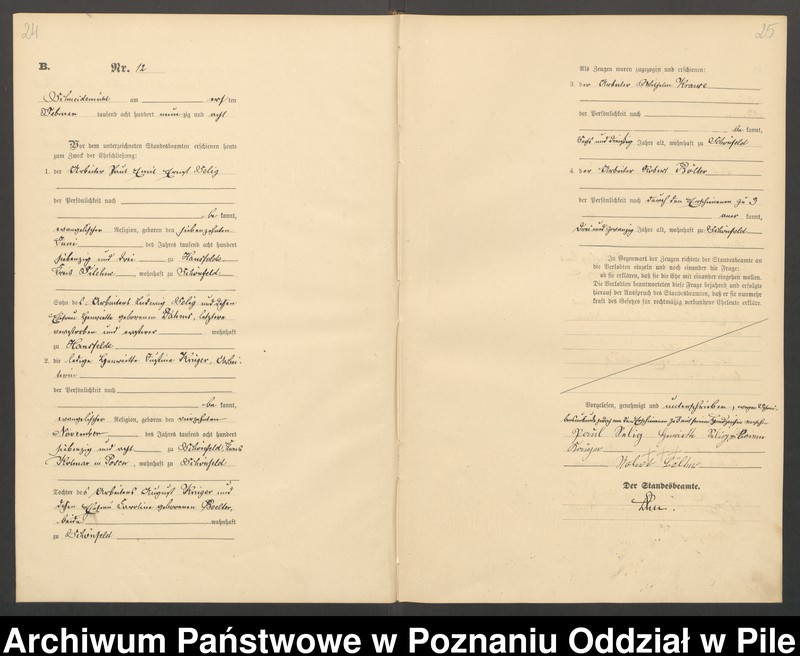 24
B. Nr. 12
Schneidemühl am ersten
Februar tausend acht hundert neunzig und acht
Vor dem unterzeichneten Standesbeamten erschienen heute
zum Zweck der Eheschließung:
1. der Arbeiter Paul Emil Ernst Selig
der Persönlichkeit nach
be kannt,
evangelischer Religion, geboren den siebenzehnten
Juni des Jahres tausend acht hundert
siebenzig und drei zu Hansfelde
Kreis Filehne, wohnhaft zu Schönfeld
Sohn des Arbeiters Ludwig Selig und dessen
Ehefrau Henriette geborenen letztere
verstorben und ersterer wohnhaft
zu Hansfelde
2. die ledige Henriette Justine Krüger, Arbei-
terin
der Persönlichkeit nach
be kannt,
evangelischer Religion, geboren den vierzehnten
November des Jahres tausend acht hundert
siebenzig und acht zu Schönfeld Kreis
Kolmar in Posen, wohnhaft zu Schönfeld
Tochter des Arbeiters August Krüger und
dessen Ehefrau Caroline geborenen Boelter,
beide wohnhaft
zu Schönfeld
25
Als Zeugen waren zugezogen und erschienen:
3. der Arbeiter Wilhelm Krause
der Persönlichkeit nach
be kannt,
Sechs und dreißig Jahre alt, wohnhaft zu Schönfeld
4. der Arbeiter Robert Bölter
der Persönlichkeit nach durch den Erschienenen zu 3
aner kannt,
drei und zwanzig Jahre alt, wohnhaft zu Schönfeld
In Gegenwart der Zeugen richtete der Standesbeamte an
die Verlobten einzeln und nach einander die Frage:
ob sie erklären, daß sie die Ehe mit einander eingehen wollen.
Die Verlobten beantworteten diese Frage bejahend und erfolgte
hierauf der Ausspruch des Standesbeamten, daß er sie nunmehr
kraft des Gesetzes für rechtmäßig verbundene Eheleute erkläre.
Vorgelesen, genehmigt und unterschrieben, wegen Schrei-
Paul Selig Henriette Selig geborene
Krüger
Robert Bölter
Der Standesbeamte.
Archiwum Państwowe w Poznaniu Oddział w Pile